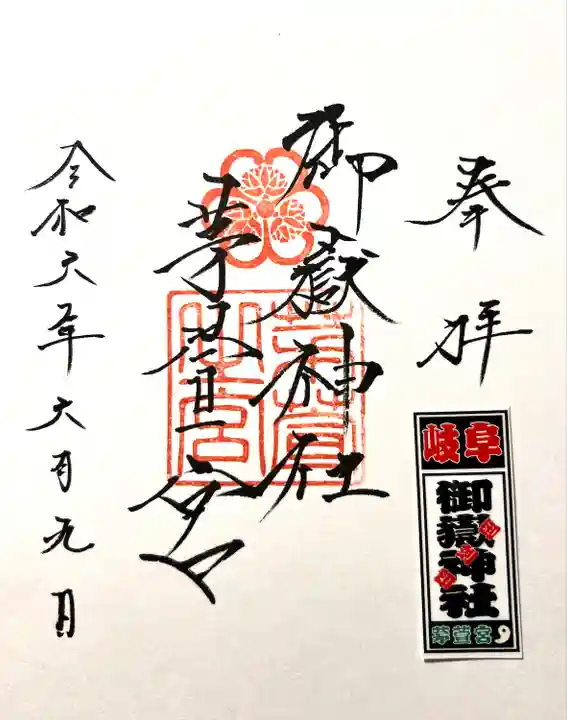 奉拝
御嶽神社
茅萱宮
令和六年六月九日
岐阜
御嶽神社
茅萱宮